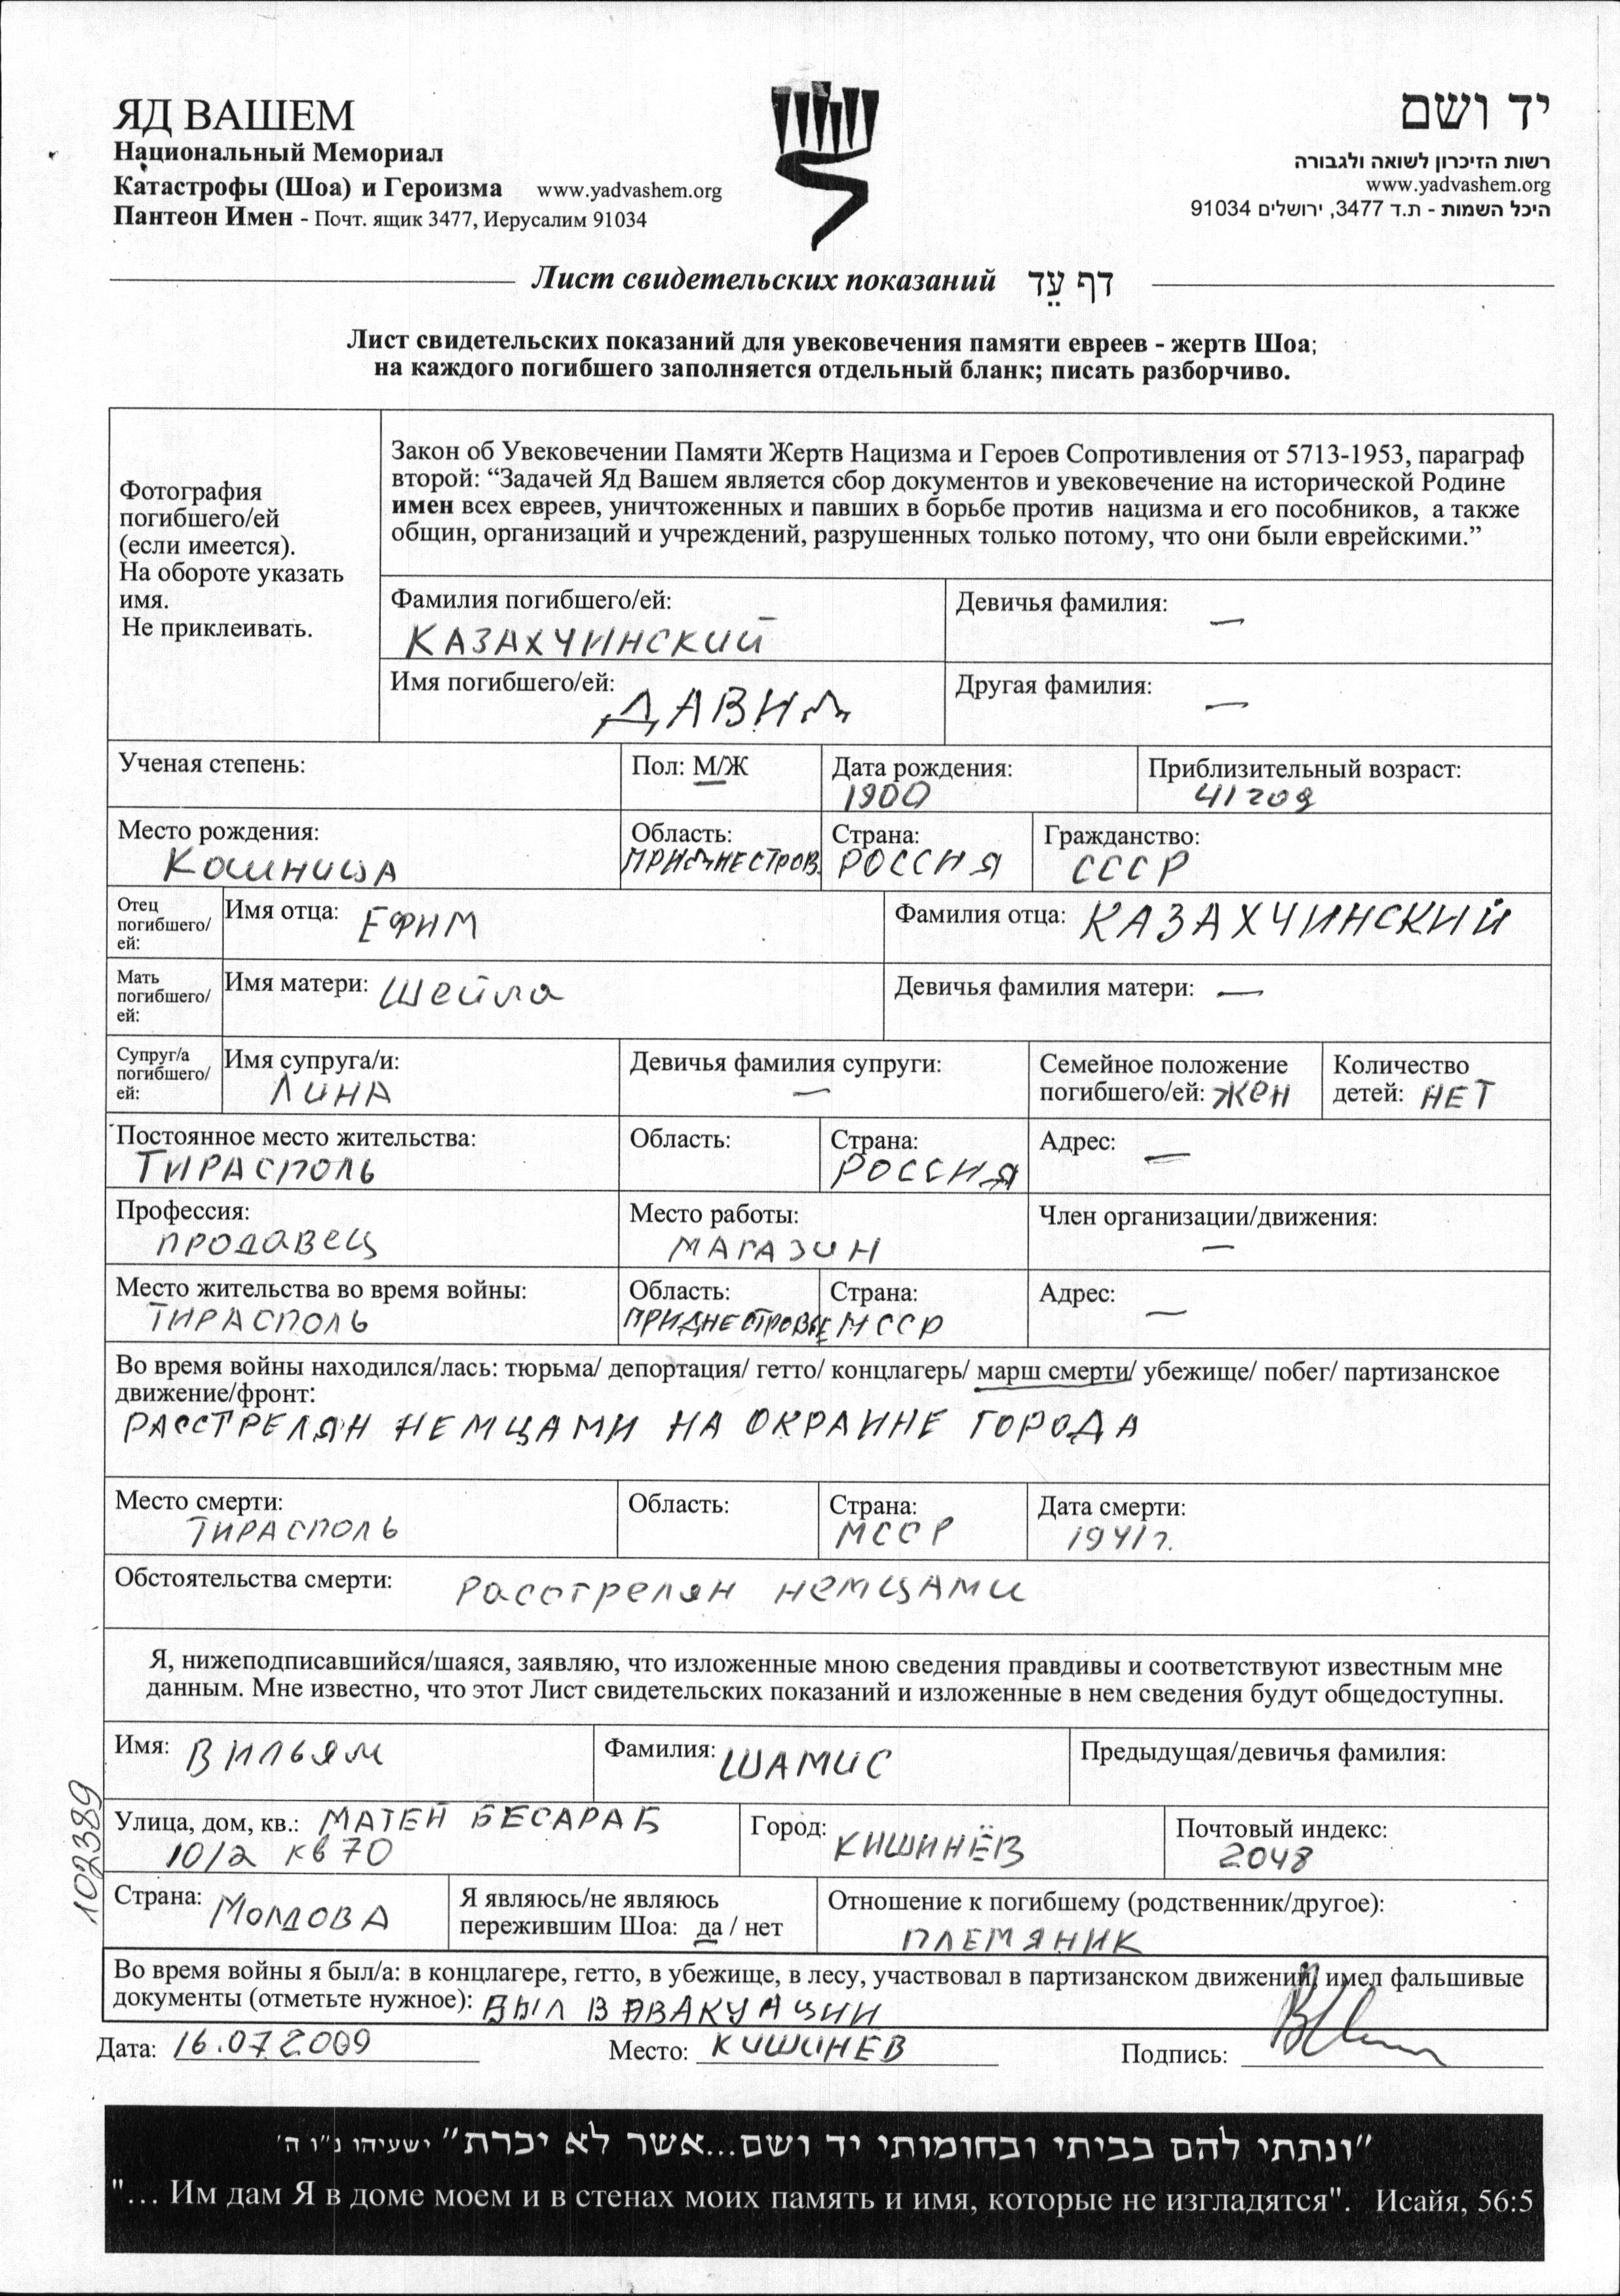 ЯД ВАШЕМ
Национальный Мемориал
Катастрофы (Шоа) и Героизма www.yadvashem.org
Пантеон Имен - Почт. ящик 3477, Иерусалим 91034
יד ושם
רשות הזיכרון לשואה ולגבורה
www.yadvashem.org
היכל השמות - ת.ד 3477, ירושלים 91034
Лист свидетельских показаний דף עֵד
Лист свидетельских показаний для увековечения памяти евреев - жертв Шоа;
на каждого погибшего заполняется отдельный бланк; писать разборчиво.
Фотография
погибшего/ей
(если имеется).
На обороте указать
имя.
Не приклеивать.
Закон об Увековечении Памяти Жертв Нацизма и Героев Сопротивления от 5713-1953, параграф
второй: “Задачей Яд Вашем является сбор документов и увековечение на исторической Родине
имен всех евреев, уничтоженных и павших в борьбе против нацизма и его пособников, а также
общин, организаций и учреждений, разрушенных только потому, что они были еврейскими.”
Фамилия погибшего/ей: Девичья фамилия: —
КАЗАХЧИНСКИЙ
Имя погибшего/ей: ДАВИД Другая фамилия: —
Ученая степень: Пол: М/Ж Дата рождения: Приблизительный возраст:
1900 41 год
Место рождения: Область: Страна: Гражданство:
Кошница ПРИДНЕСТРОВ. РОССИЯ СССР
Отец
погибшего/
ей:
Имя отца: ЕФИМ Фамилия отца: КАЗАХЧИНСКИЙ
Мать
погибшего/
ей:
Имя матери: Шейла Девичья фамилия матери: —
Супруг/а
погибшего/
ей:
Имя супруга/и: Девичья фамилия супруги: Семейное положение Количество
ЛИНА — погибшего/ей: ЖЕН детей: НЕТ
Постоянное место жительства: Область: Страна: Адрес: —
ТИРАСПОЛЬ РОССИЯ
Профессия: Место работы: Член организации/движения:
продавец МАГАЗИН —
Место жительства во время войны: Область: Страна: Адрес: —
ТИРАСПОЛЬ ПРИДНЕСТРОВЬЕ МССР
Во время войны находился/лась: тюрьма/ депортация/ гетто/ концлагерь/ марш смерти/ убежище/ побег/ партизанское
движение/фронт:
РАССТРЕЛЯН НЕМЦАМИ НА ОКРАИНЕ ГОРОДА
Место смерти: Область: Страна: Дата смерти:
ТИРАСПОЛЬ МССР 1941г.
Обстоятельства смерти: Расстрелян немцами
Я, нижеподписавшийся/шаяся, заявляю, что изложенные мною сведения правдивы и соответствуют известным мне
данным. Мне известно, что этот Лист свидетельских показаний и изложенные в нем сведения будут общедоступны.
Имя: ВИЛЬЯМ Фамилия: ШАМИС Предыдущая/девичья фамилия:
Улица, дом, кв.: МАТЕЙ БЕСАРАБ Город: КИШИНЁВ Почтовый индекс:
10/2 кв 70 2048
102389
Страна: МОЛДОВА Я являюсь/не являюсь Отношение к погибшему (родственник/другое):
пережившим Шоа: да / нет ПЛЕМЯНИК
Во время войны я был/а: в концлагере, гетто, в убежище, в лесу, участвовал в партизанском движении, имел фальшивые
документы (отметьте нужное): БЫЛ В ЭВАКУАЦИИ
Дата: 16.07.2009 Место: КИШИНЕВ Подпись:
"ונתתי להם בביתי ובחומותי יד ושם...אשר לא יכרת" ישעיהו נ"ו ה'
"... Им дам Я в доме моем и в стенах моих память и имя, которые не изгладятся". Исайя, 56:5